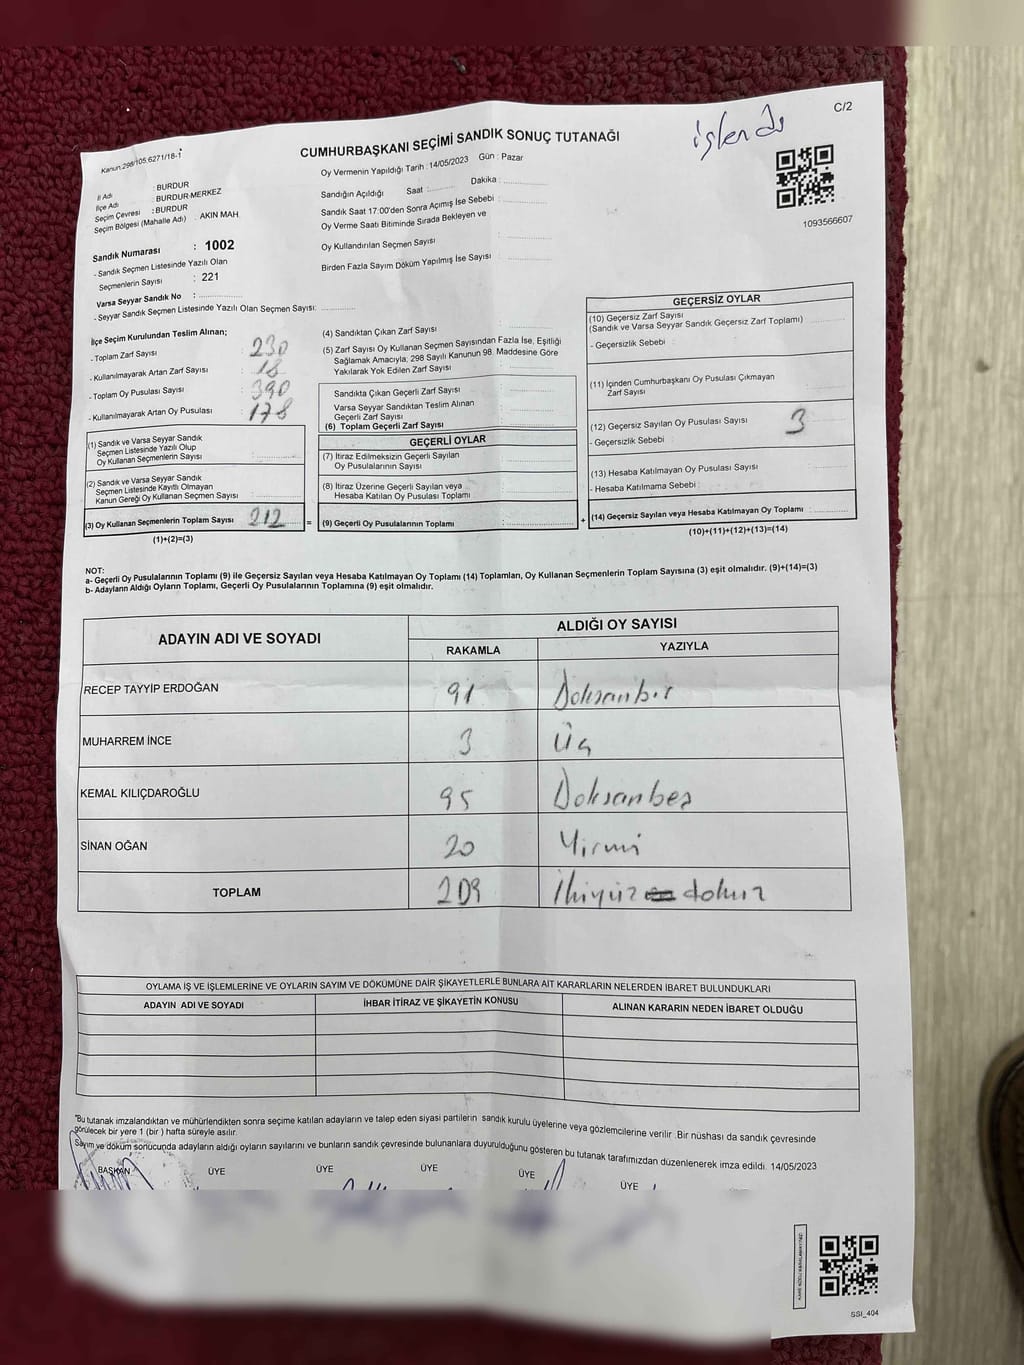 işlendi
C/2
Kanun:298/105,6271/18-1
CUMHURBAŞKANI SEÇİMİ SANDIK SONUÇ TUTANAĞI
İl Adı : BURDUR
İlçe Adı : BURDUR-MERKEZ
Seçim Çevresi : BURDUR
Seçim Bölgesi (Mahalle Adı) . AKIN MAH.
Sandık Numarası : 1002
- Sandık Seçmen Listesinde Yazılı Olan
Seçmenlerin Sayısı : 221
Varsa Seyyar Sandık No :
- Seyyar Sandık Seçmen Listesinde Yazılı Olan Seçmen Sayısı:
Oy Vermenin Yapıldığı Tarih : 14/05/2023 Gün : Pazar
Sandığın Açıldığı Saat : Dakika :
Sandık Saat 17:00'den Sonra Açımış İse Sebebi :
Oy Verme Saati Bitiminde Sırada Bekleyen ve
Oy Kullandırılan Seçmen Sayısı :
Birden Fazla Sayım Döküm Yapılmış İse Sayısı :
1093566607
İlçe Seçim Kurulundan Teslim Alınan;
- Toplam Zarf Sayısı : 230
- Kullanılmayarak Artan Zarf Sayısı : 18
- Toplam Oy Pusulası Sayısı : 390
- Kullanılmayarak Artan Oy Pusulası : 178
(1) Sandık ve Varsa Seyyar Sandık
Seçmen Listesinde Yazılı Olup
Oy Kullanan Seçmenlerin Sayısı :
(2) Sandık ve Varsa Seyyar Sandık
Seçmen Listesinde Kayıtlı Olmayan
Kanun Gereği Oy Kullanan Seçmen Sayısı :
(3) Oy Kullanan Seçmenlerin Toplam Sayısı 212 =
(1)+(2)=(3)
(4) Sandıktan Çıkan Zarf Sayısı :
(5) Zarf Sayısı Oy Kullanan Seçmen Sayısından Fazla İse, Eşitliği
Sağlamak Amacıyla, 298 Sayılı Kanunun 98. Maddesine Göre
Yakılarak Yok Edilen Zarf Sayısı :
Sandıkta Çıkan Geçerli Zarf Sayısı :
Varsa Seyyar Sandıktan Teslim Alınan
Geçerli Zarf Sayısı :
(6) Toplam Geçerli Zarf Sayısı :
GEÇERLİ OYLAR
(7) İtiraz Edilmeksizin Geçerli Sayılan
Oy Pusulalarının Sayısı :
(8) İtiraz Üzerine Geçerli Sayılan veya
Hesaba Katılan Oy Pusulası Toplamı :
(9) Geçerli Oy Pusulalarının Toplamı : +
GEÇERSİZ OYLAR
(10) Geçersiz Zarf Sayısı :
(Sandık ve Varsa Seyyar Sandık Geçersiz Zarf Toplamı)
- Geçersizlik Sebebi :
(11) İçinden Cumhurbaşkanı Oy Pusulası Çıkmayan
Zarf Sayısı :
(12) Geçersiz Sayılan Oy Pusulası Sayısı : 3
- Geçersizlik Sebebi :
(13) Hesaba Katılmayan Oy Pusulası Sayısı :
- Hesaba Katılmama Sebebi :
(14) Geçersiz Sayılan veya Hesaba Katılmayan Oy Toplamı :
(10)+(11)+(12)+(13)=(14)
NOT:
a- Geçerli Oy Pusulalarının Toplamı (9) ile Geçersiz Sayılan veya Hesaba Katılmayan Oy Toplamı (14) Toplamları, Oy Kullanan Seçmenlerin Toplam Sayısına (3) eşit olmalıdır. (9)+(14)=(3)
b- Adayların Aldığı Oyların Toplamı, Geçerli Oy Pusulalarının Toplamına (9) eşit olmalıdır.
ADAYIN ADI VE SOYADI
ALDIĞI OY SAYISI
RAKAMLA YAZIYLA
RECEP TAYYİP ERDOĞAN 91 Doksanbir
MUHARREM İNCE 3 Üç
KEMAL KILIÇDAROĞLU 95 Doksanbeş
SİNAN OĞAN 20 Yirmi
TOPLAM 209 İkiyüz dokuz
OYLAMA İŞ VE İŞLEMLERİNE VE OYLARIN SAYIM VE DÖKÜMÜNE DAİR ŞİKAYETLERLE BUNLARA AİT KARARLARIN NELERDEN İBARET BULUNDUKLARI
ADAYIN ADI VE SOYADI İHBAR İTİRAZ VE ŞİKAYETİN KONUSU ALINAN KARARIN NEDEN İBARET OLDUĞU
"Bu tutanak imzalandıktan ve mühürlendikten sonra seçime katılan adayların ve talep eden siyasi partilerin sandık kurulu üyelerine veya gözlemcilerine verilir .Bir nüshası da sandık çevresinde
görülecek bir yere 1 (bir ) hafta süreyle asılır.
Sayım ve döküm sonucunda adayların aldığı oyların sayılarını ve bunların sandık çevresinde bulunanlara duyurulduğunu gösteren bu tutanak tarafımızdan düzenlenerek imza edildi. 14/05/2023
BAŞKAN ÜYE ÜYE ÜYE ÜYE ÜYE
SSI_404